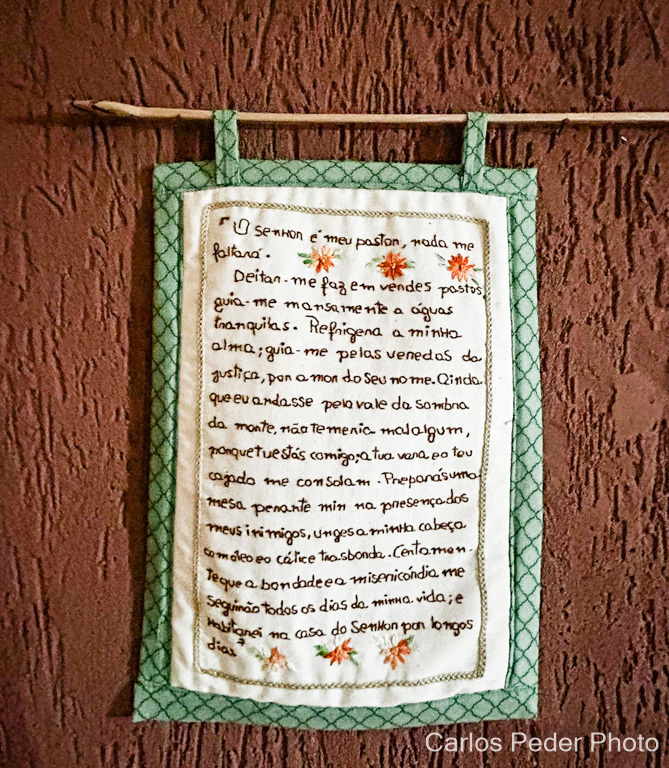 "O Senhor é meu pastor, nada me
faltará.
Deitar-me faz em verdes pastos,
guia-me mansamente a águas
tranquilas. Refrigera a minha
alma; guia-me pelas veredas da
justiça, por amor do Seu nome. Ainda
que eu andasse pelo vale da sombra
da morte, não temeria mal algum,
porque tu estás comigo; a tua vara e o teu
cajado me consolam. Preparás uma
mesa perante mim na presença dos
meus inimigos, unges a minha cabeça
com óleo e o cálice trasborda. Certamen-
te que a bondade e a misericórdia me
seguirão todos os dias da minha vida; e
habitarei na casa do Senhor por longos
dias"
Carlos Peder Photo